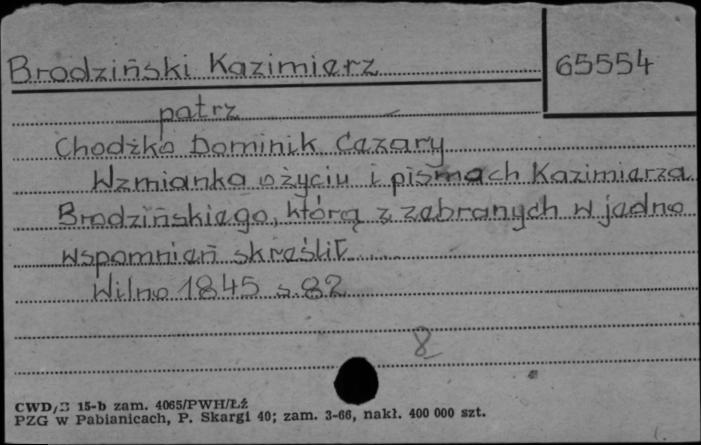 Brodziński Kazimierz
65554
patrz
Chodźko Dominik Cezary
Wzmianka o życiu i pismach Kazimierza
Brodzińskiego, którą z zebranych w jedno
wspomnień skreślił
Wilno 1845 s. 82
8
CWD/B 15-b zam. 4065/PWH/Łź
PZG w Pabianicach, P. Skargi 40; zam. 3-66, nakł. 400 000 szt.